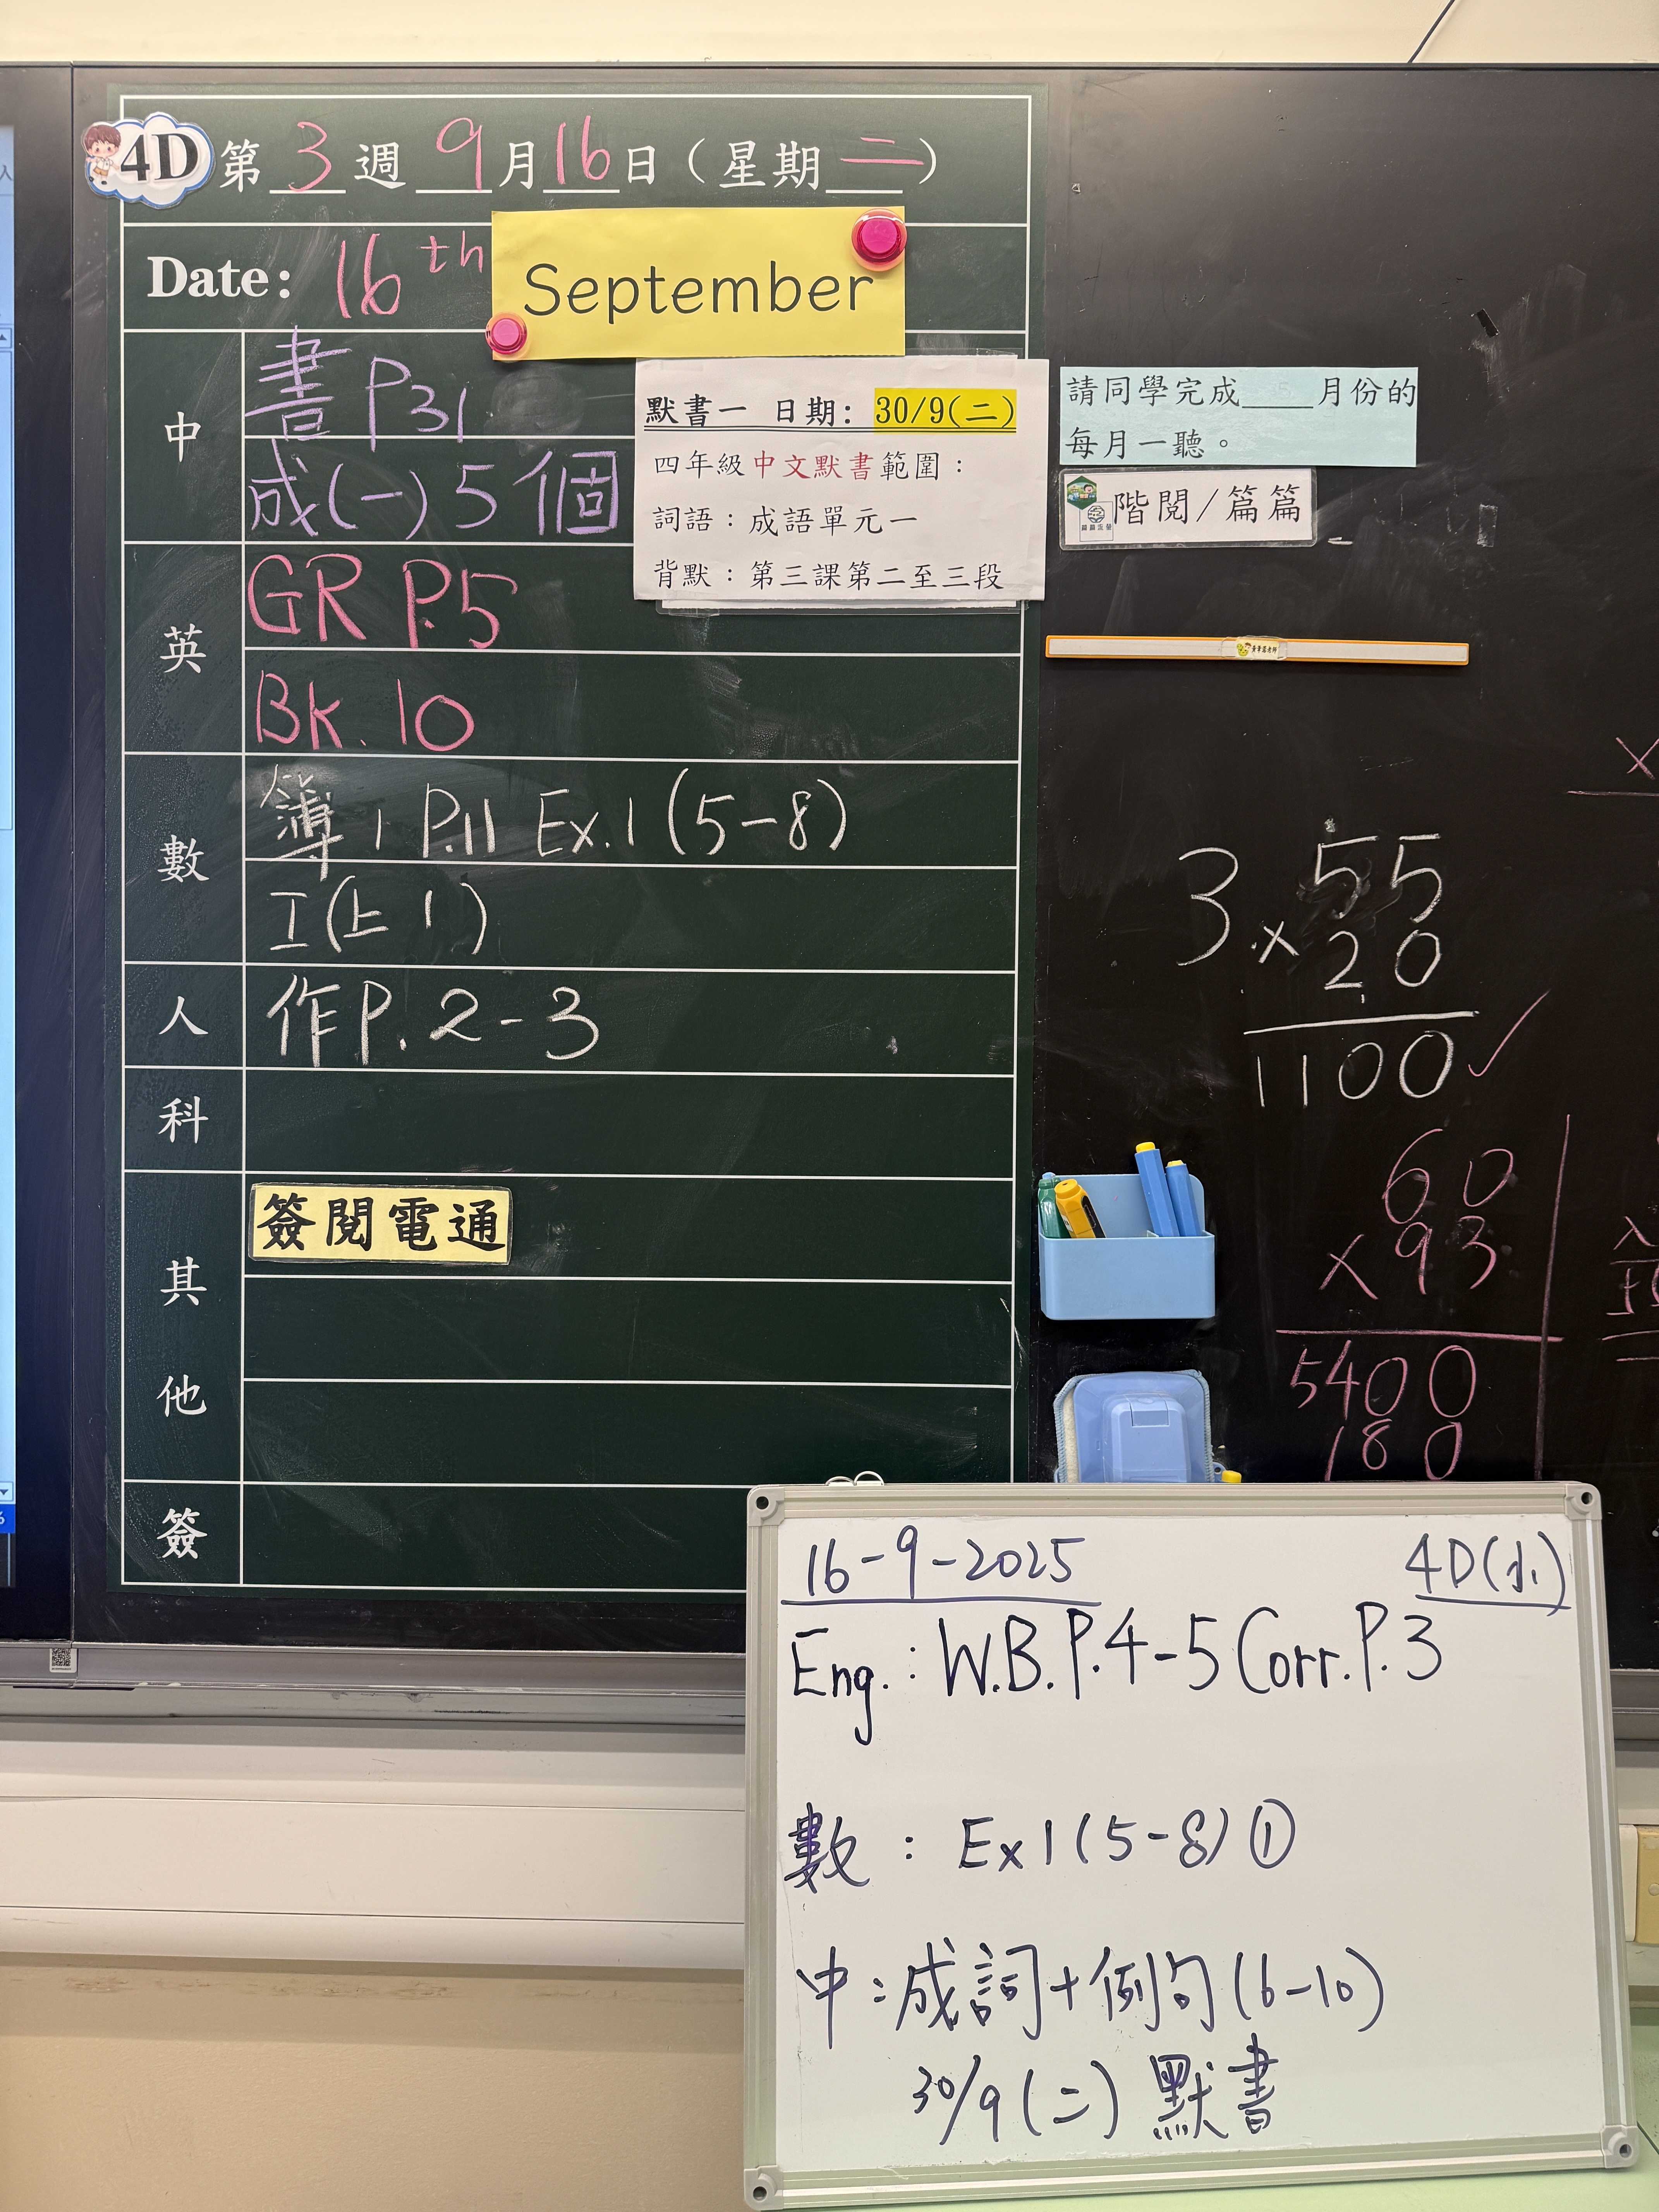 4D 第 3 週 9 月 16 日（星期 二 ）
Date: 16th September
中
書 P31
成(一) 5 個
默書一 日期: 30/9(二)
四年級中文默書範圍：
詞語：成語單元一
背默：第三課第二至三段
請同學完成____月份的
每月一聽。
階閱/篇篇
英
GR P.5
Bk. 10
數
簿 1 P.11 Ex.1 (5-8)
工(上 1)
人
作P. 2-3
科
其他
簽閱電通
簽
3 55
× 20
1100 ✓
60
× 93
5400
180
16-9-2025 4D(小)
Eng.: W.B. P.4-5 Corr. P.3
數: Ex 1 (5-8) ①
中: 成詞+例句 (6-10)
30/9 (二) 默書